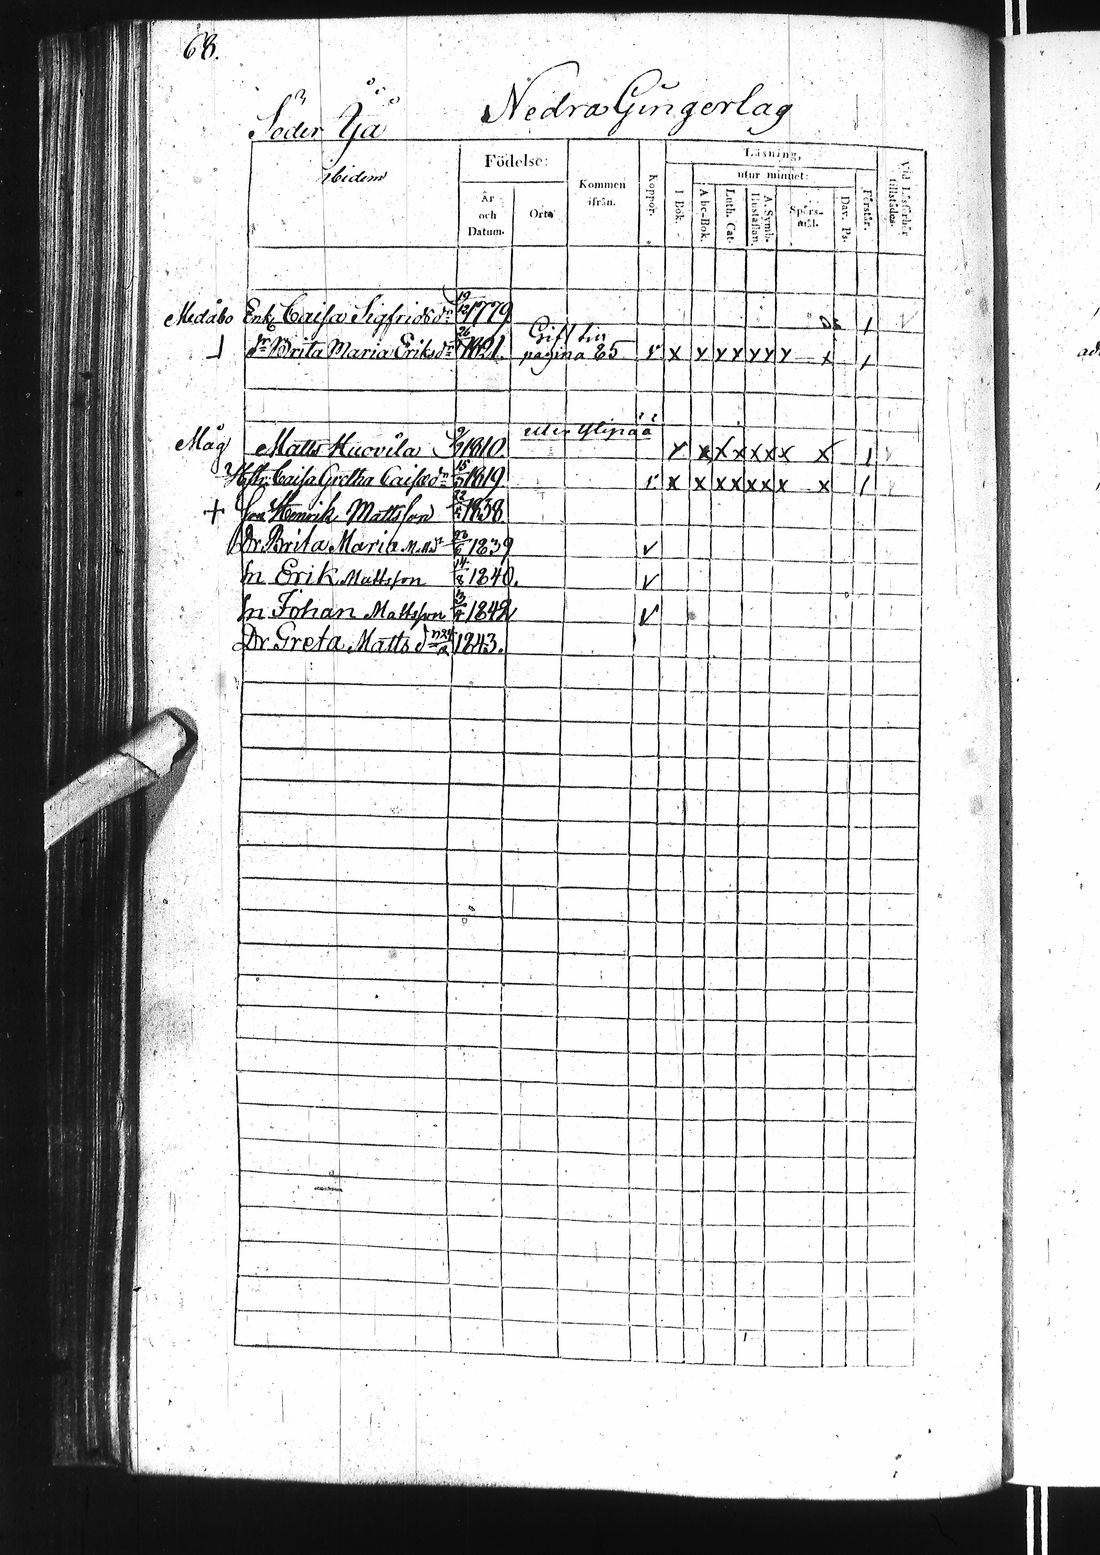 68.
Söder Yä
Nedra Gingerlag
ibidem
Födelse:
År och Datum.
Ort.
Kommen ifrån.
Koppor.
Läsning,
utur minnet:
I Bok.
Abc-Bok.
Luth. Cat.
A. Symb. Hustaflan.
Spörs-mål.
Dav. Ps.
Förstår.
Vid Läsförhör tillstädes.
Medåbo Enk. Caisa Sigfridsdr 19/12 1779 1
Dr Brita Maria Eriksdr 1821. Gift hus pagina 85 v x x x x x x x x 1
Måg Matts Huovila 1810 x x x x x x x x 1
Hstr. Caisa Gretha Caisadr 15 1819 v x x x x x x x x 1
+ Son Henrik Mattsson 1838
Dr Brita Maria M.Mdr 1839 v
Sn Erik Mattsson 14/8 1840. v
Sn Johan Mattsson 1842 v
Dr Greta Mattsdr 1843.